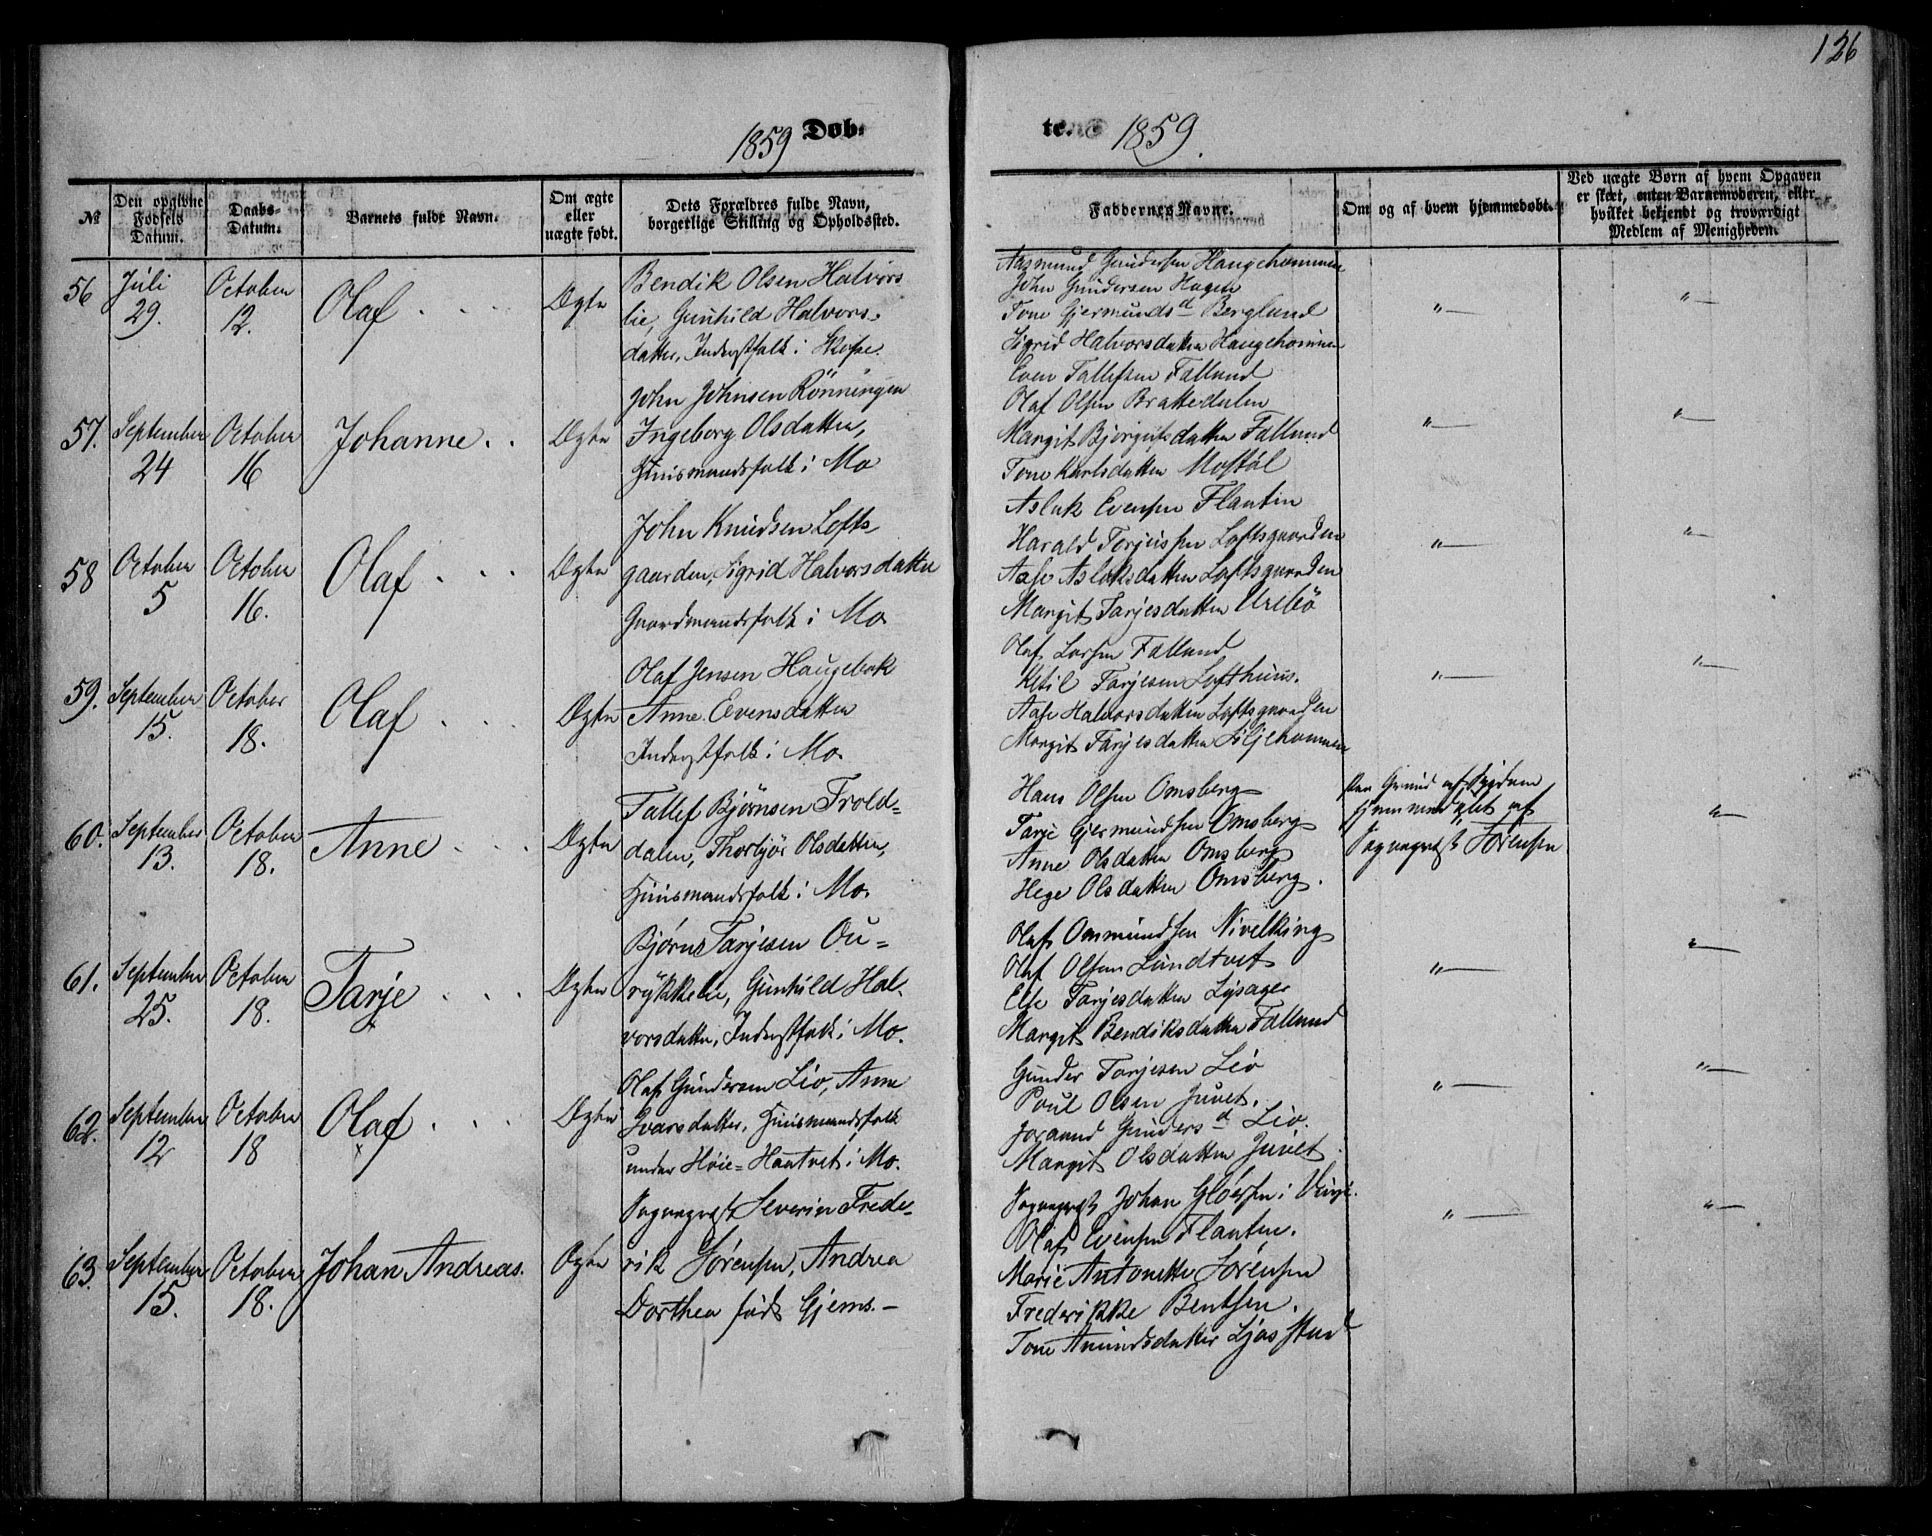 126
1859 Døb-
te. 1859.
№
Den opgivne Fødsels Datum.
Daabs-Datum.
Barnets fulde Navn.
Om ægte eller uægte født.
Dets Forældres fulde Navn, borgerlige Stilling og Opholdssted.
Faddernes Navne.
Om og af hvem hjemmedøbt.
Ved uægte Børn af hvem Opgaven er skeet, enten Barnemoderen, eller hvilket bekjendt og troværdigt Medlem af Menigheden.
56 Juli 29. October 12. Olaf Ægte
Bendik Olsen Halvors
lie, Gunhild Halvors-
datter, Inderstfolk i Skafse.
Aasmund Gundersen Haugehommen
John Gundersen Hagen
Tone Gjermundsd Berglund
Sigrid Halvorsdatter Haugehommen
57. September 24 October 16 Johanne Ægte
John Johnsen Rönningen
Ingeborg Olsdatter,
Huusmandsfolk i Mo
Even Tallefsen Falland
Olaf Olsen Brattedalen
Margit Bjorgulsdatter Falland
Tone Karlsdatter Mostöl
58 October 5 October 16. Olaf Ægte
John Knudsen Lofts-
gaarden, Sigrid Halvorsdatter
Gaardmandsfolk i Mo
Aslak Evensen Flantin
Harald Torjussen Loftsgaarden
Aase Aslaksdatter Loftsgaarden
Margit Tarjesdatter Urebö
59. September 15. October 18. Olaf Ægte
Olaf Jensen Haugebak
Anne Evensdatter
Inderstfolk i Mo.
Olaf Larsen Falland
Ketil Tarjesen Lofthuus.
Aase Halvorsdatter Loftsgaarden
Margit Tarjesdatter Liljehommen
60. September 13. October 18. Anne Ægte
Tallef Bjørnsen Trold-
dalen, Thorbjör Olsdatter,
Huusmandsfolk i Mo.
Hans Olsen Omsberg
Tarje Gjermundsen Omsberg
Anne Olsdatter Omsberg
Hege Olsdatter Omsberg.
Paa Grund af Sygdom
hjemmedøbt af
Sognepræst Sörensen
61. September 25. October 18. Tarje Ægte
Bjørn Tarjesen Ou-
rykkelie, Gunhild Hal-
vorsdatter, Inderstfolk i Mo.
Olaf Ommundsen Nivelking
Olaf Olsen Lundtvet
Else Tarjesdatter Lysager
Margit Bendiksdatter Falland
62. September 12 October 18 Olaf Ægte
Olaf Gundersen Liö, Anne
Ivarsdatter, Huusmandsfolk
under Høie-Haatvet i Mo.
Gunder Tarjesen Liö
Poul Olsen Juvet.
Joraand Gundersd Liö.
Margit Olsdatter Juvet
63. September 15. October 18. Johan Andreas. Ægte
Sognepræst Severin Frede-
rik Sørensen, Andrea
Dorthea født Gjems.-
Sognepræst Johan Gløersen i Vinje.
Olaf Evensen Flanten.
Marie Antonette Sørensen
Frederikke Bentsen.
Tone Amundsdatter Ljosstad